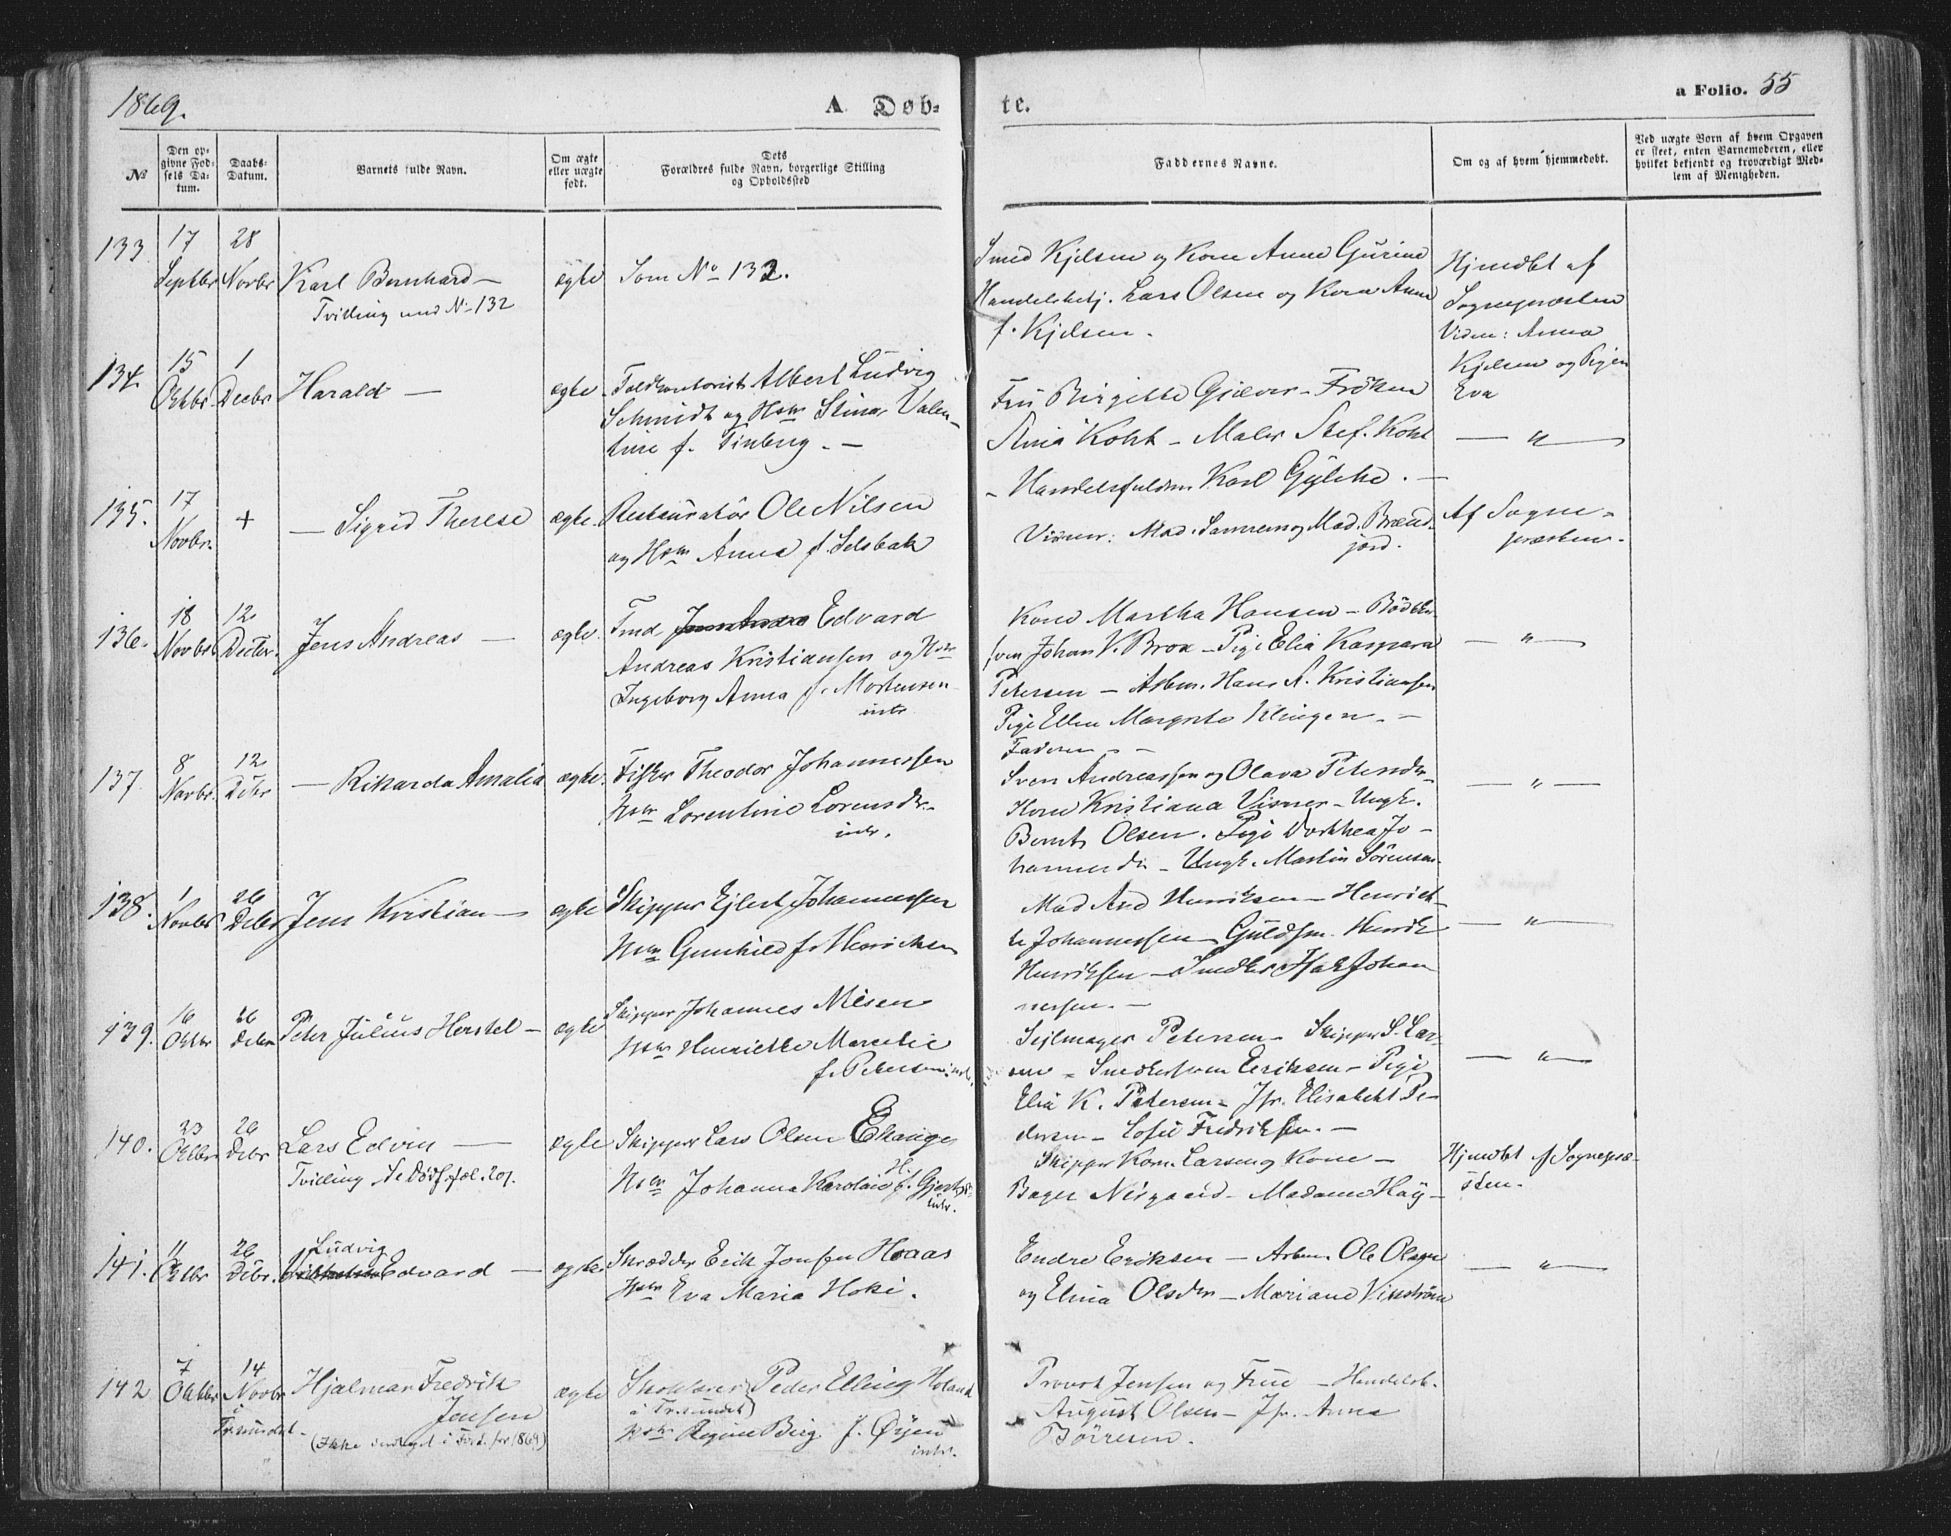 1869.
A Døb-
te.
a Folio. 55
№
Den op-
givne Fød-
sels Da-
tum.
Daabs-
Datum.
Barnets fulde Navn.
Om ægte
eller uægte
født.
Dets
Forældres fulde Navn, borgerlige Stilling
og Opholdssted
Faddernes Navne.
Om og af hvem hjemmedøbt.
Ved uægte Børn af hvem Opgaven
er skeet, enten Barnemoderen, eller
hvilket bekjendt og troværdigt Med-
lem af Menigheden.
133
17 Septbr
28 Novbr
Karl Bernhard —
Tvilling med No 132
ægte
Som No 132.
Smed Kjelsen og Kone Anne Gurine
Handelsbetj. Lars Olsen og Kone Anne
f. Kjelsen.
Hjmdbt af
Sognepræsten
Vidne: Anna
Kjelsen og Pigen
Eva
134.
15 Oktbr.
1 Decbr
Harald —
ægte.
Toldkontorist Albert Ludvig
Schmidt og Hstr Stina Valen-
tine f. Finberg. —
Fru Birgitte Gjæver - Frøken
Stina Koht - Maler Stef. Koht
- Handelsfuldm. Karl Gylche. —
— " —
135.
17 Novbr.
+
— Sigrid Therese
ægte.
Restauratør Ole Nilsen
og Hstr Anna f. Selsbak
Vidner: Mad. Sannem og Mad. Brend-
jord.
Af Sogne-
præsten.
136.
18 Novbr
12 Decbr.
Jens Andreas —
ægte.
Smed Edvard
Andreas Kristiansen og Hstr
Ingeborg Anna f. Mortensen
intr.
Kone Martha Hansen - Bødker-
sven Johan V. Brox - Pige Elia Kaspara
Petersen - Arbm. Hans A. Kristiansen
Pige Ellen Margrete Klingen. —
Faderen. —
— " —
137.
8 Novbr.
12 Debr
— Rikarda Amalia
ægte.
Fisker Theodor Johannessen
Hstr Lorentine Lorensdr.
intr.
Sven Andreassen og Olava Petersdr.
Kone Kristiana Visner - Ungk.
Bernt Olsen. Pige Dorthea Jo-
hannesdr - Ungk. Martin Sørensen
— " —
138.
1 Novbr
26 Debr
Jens Kristian —
ægte
Skipper Ejlert Johannessen
Hstr Gunhild f. Henriksen
Mad And Henriksen - Henrik-
ke Johannessen - Guldsm. Henrik
Henriksen - Snedker Isak Johan
nessen. —
— " —
139.
16 Oktbr
26 Debr
Peter Julius Herstel —
ægte
Skipper Johannes Nisen
Hstr Henriette Marselie
f. Petersen. intr.
Sejlmager Petersen - Skipper S. Lar-
sen - Snedkersven Eriksen - Pige
Elia K. Petersen - Jfr. Elisabeht Pe-
dersen - Sofie Fredriksen. —
— " —
140.
23 Oktbr
26 Debr
Lars Edvin —
Tvilling Se Dødf. fol. 201.
ægte
Skipper Lars Olsen Ekanger
Hstr Johanna Karoline H. f. Gjert
intr.
Skipper Korn. Larsen og Kone —
Bager Nisgaard - Madame Høy —
Hjmdbt af Sognepræ-
sten.
141.
11 Oktbr
26 Debr.
Ludvig
Edvard —
ægte
Skrædder Erik Jonsen Haas
Hstr Eva Maria Hoki.
Endre Eriksen - Arbm. Ole Olsen
og Elina Olsdr - Mariane Vinstrøm
— " —
142
7 Oktbr
i Tr.sundet.
14 Novbr
Hjalmar Fredrik
Jensen
(Ikke indtaget i Fort. for 1869)
ægte
Skolelærer Peder Elling Holand
i Tr.sundet)
Hstr Regine Birg. f. Øyen
intr.
Provst Jensen og Frue - Handelsb.
August Olsen - Jfr. Anna
Børresen.